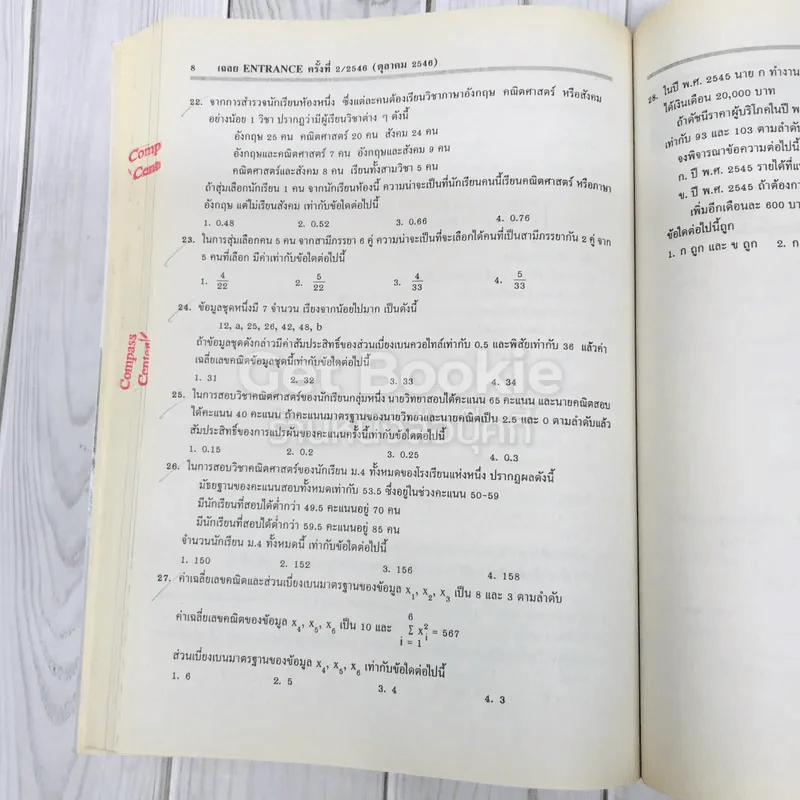 8 เฉลย ENTRANCE ครั้งที่ 2/2546 (ตุลาคม 2546)
22. จากการสำรวจนักเรียนห้องหนึ่ง ซึ่งแต่ละคนต้องเรียนวิชาภาษาอังกฤษ คณิตศาสตร์ หรือสังคม
อย่างน้อย 1 วิชา ปรากฏว่ามีผู้เรียนวิชาต่าง ๆ ดังนี้
อังกฤษ 25 คน คณิตศาสตร์ 20 คน สังคม 24 คน
อังกฤษและคณิตศาสตร์ 7 คน อังกฤษและสังคม 9 คน
คณิตศาสตร์และสังคม 8 คน เรียนทั้งสามวิชา 5 คน
ถ้าสุ่มเลือกนักเรียน 1 คน จากนักเรียนห้องนี้ ความน่าจะเป็นที่นักเรียนคนนี้เรียนคณิตศาสตร์ หรือภาษา
อังกฤษ แต่ไม่เรียนสังคม เท่ากับข้อใดต่อไปนี้
1. 0.48 2. 0.52 3. 0.66 4. 0.76
23. ในการสุ่มเลือกคน 5 คน จากสามีภรรยา 6 คู่ ความน่าจะเป็นที่จะเลือกได้คนที่เป็นสามีภรรยากัน 2 คู่ จาก
5 คนที่เลือก มีค่าเท่ากับข้อใดต่อไปนี้
1. 4/22 2. 5/22 3. 4/33 4. 5/33
24. ข้อมูลชุดหนึ่งมี 7 จำนวน เรียงจากน้อยไปมาก เป็นดังนี้
12, a, 25, 26, 42, 48, b
ถ้าข้อมูลชุดดังกล่าวมีค่าสัมประสิทธิ์ของส่วนเบี่ยงเบนควอไทล์เท่ากับ 0.5 และพิสัยเท่ากับ 36 แล้วค่า
เฉลี่ยเลขคณิตข้อมูลชุดนี้เท่ากับข้อใดต่อไปนี้
1. 31 2. 32 3. 33 4. 34
25. ในการสอบวิชาคณิตศาสตร์ของนักเรียนกลุ่มหนึ่ง นายวิทยาสอบได้คะแนน 65 คะแนน และนายคณิตสอบ
ได้คะแนน 40 คะแนน ถ้าคะแนนมาตรฐานของนายวิทยาและนายคณิตเป็น 2.5 และ 0 ตามลำดับแล้ว
สัมประสิทธิ์ของการแปรผันของคะแนนครั้งนี้เท่ากับข้อใดต่อไปนี้
1. 0.15 2. 0.2 3. 0.25 4. 0.3
26. ในการสอบวิชาคณิตศาสตร์ของนักเรียน ม.4 ทั้งหมดของโรงเรียนแห่งหนึ่ง ปรากฏผลดังนี้
มัธยฐานของคะแนนสอบทั้งหมดเท่ากับ 53.5 ซึ่งอยู่ในช่วงคะแนน 50-59
มีนักเรียนที่สอบได้ต่ำกว่า 49.5 คะแนนอยู่ 70 คน
มีนักเรียนที่สอบได้ต่ำกว่า 59.5 คะแนนอยู่ 85 คน
จำนวนนักเรียน ม.4 ทั้งหมดนี้ เท่ากับข้อใดต่อไปนี้
1. 150 2. 152 3. 156 4. 158
27. ค่าเฉลี่ยเลขคณิตและส่วนเบี่ยงเบนมาตรฐานของข้อมูล x₁, x₂, x₃ เป็น 8 และ 3 ตามลำดับ
ค่าเฉลี่ยเลขคณิตของข้อมูล x₄, x₅, x₆ เป็น 10 และ 6 Σ i = 1 xᵢ² = 567
ส่วนเบี่ยงเบนมาตรฐานของข้อมูล x₄, x₅, x₆ เท่ากับข้อใดต่อไปนี้
1. 6 2. 5 3. 4 4. 3
Comp
Cente
Compass
Center
Get Bookie
ร้านหนังสือบุ๊คกี้
28. ในปี พ.ศ. 2545 นาย ก ทำงาน
ได้เงินเดือน 20,000 บาท
ถ้าดัชนีราคาผู้บริโภคในปี พ
เท่ากับ 93 และ 103 ตามลำดับ
จงพิจารณาข้อความต่อไปนี้
ก. ปี พ.ศ. 2545 รายได้ที่แท้
ข. ปี พ.ศ. 2545 ถ้าต้องการ
เพิ่มอีกเดือนละ 600 บา
ข้อใดต่อไปนี้ถูก
1. ก ถูก และ ข ถูก 2. ก